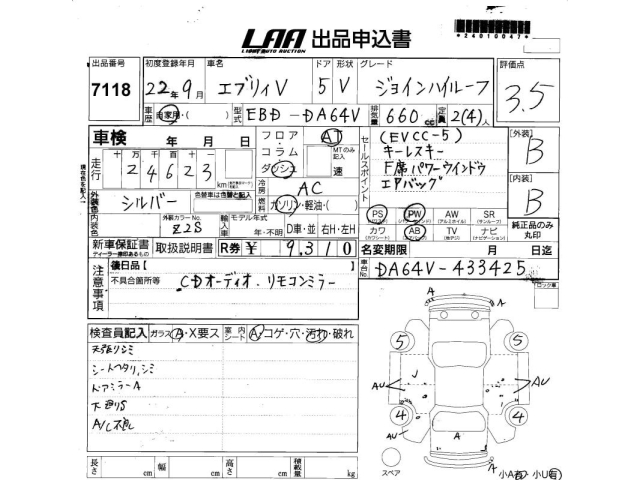 LAA 出品申込書
LIGHT AUTO AUCTION
*24010047*
出品番号 初度登録年月 車名 ドア 形状 グレード 評価点
7118 22年9月 エブリィV 5 V ジョインハイルーフ 3.5
車歴 自家用・( ) 型式 EBD-DA64V 排気量 660cc 定員 2(4)人
車検 年 月 日
フロア コラム ダッシュ AT
MTのみ記入 速
セールスポイント
(EVCC-5)
キーレスキー
F席パワーウインドウ
エアバッグ
【外装】 B
【内装】 B
走行 十万 万 千 百 十 一
24623 km
冷房 AC
外装色 シルバー 色替車は色替と記入
燃料 ガソリン・軽油・( )
内装色 外装カラーNo. Z2S
輸入車 モデル年式 年・不明 D車・並 右H・左H
PS PW AW SR
カワ AB TV ナビ
純正品のみ丸印
新車保証書 取扱説明書 R券 ¥ 9,310
ディーラー捺印あるもの
名変期限 月 日迄
車台No. DA64V-433425
注意事項 後日品【 】
不具合箇所等 CDオーディオ.リモコンミラー
検査員記入 ガラス A・X要ス 室内シート A コゲ・穴・汚れ・破れ
天張りシミ
シートヘタリ,シミ
ドアミラーA
下廻りS
A/C不良
5 5
4 4
A
AU AU
AU
A
A
スペア
小A有 小U有
長さ cm 幅 cm 高さ cm 積載量 kg